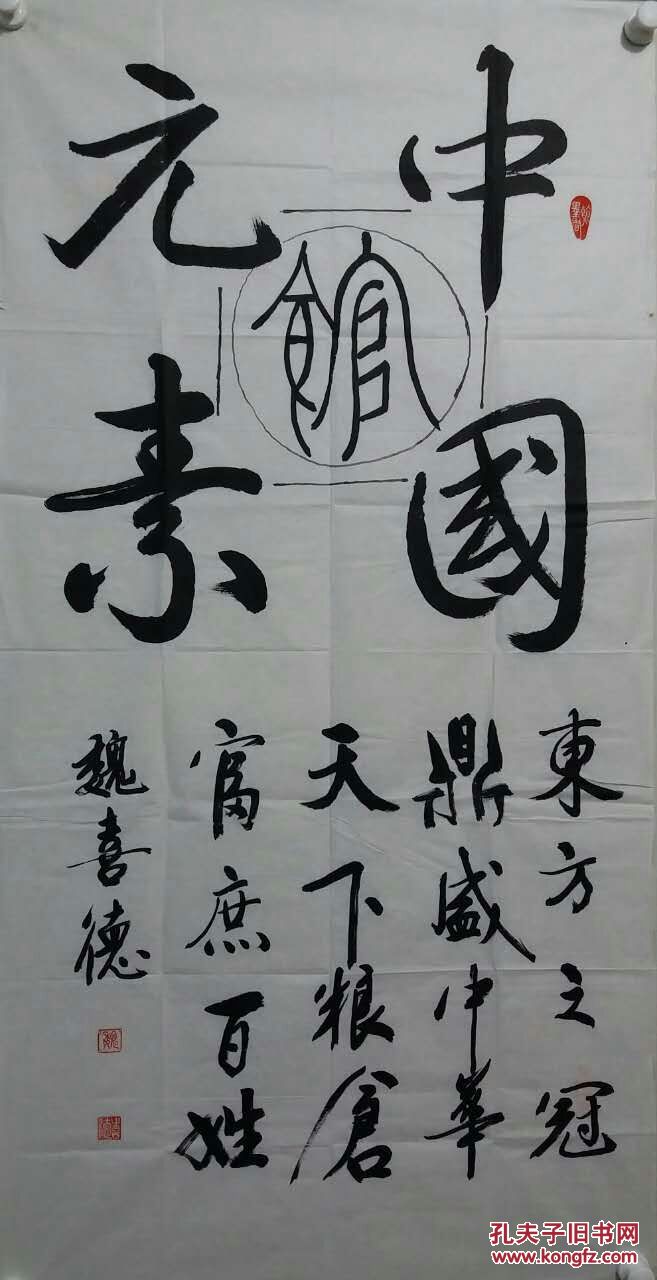 中國
元素
館
東方之冠
鼎盛中華
天下粮倉
富庶百姓
魏喜德
孔夫子旧书网
www.kongfz.com